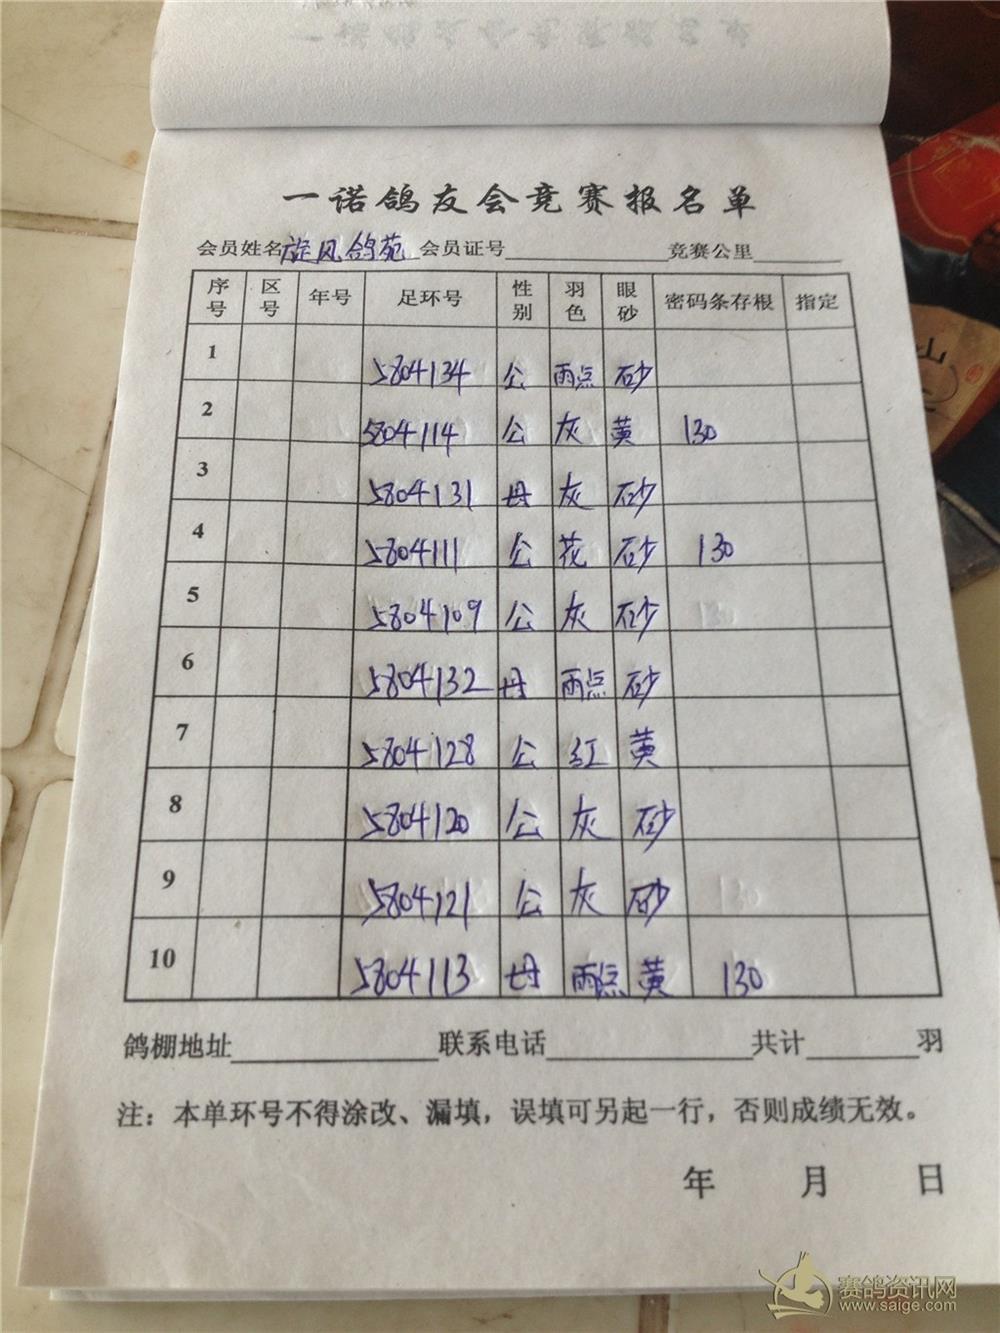 一诺鸽友会竞赛报名单
会员姓名旋风鸽苑 会员证号 竞赛公里
序号 区号 年号 足环号 性别 羽色 眼砂 密码条存根 指定
1 5804134 公 雨点 砂
2 5804114 公 灰 黄 130
3 5804131 母 灰 砂
4 5804111 公 花 砂 130
5 5804109 公 灰 砂
6 5804132 母 雨点 砂
7 5804128 公 红 黄
8 5804120 公 灰 砂
9 5804121 公 灰 砂
10 5804113 母 雨点 黄 130
鸽棚地址 联系电话 共计 羽
注：本单环号不得涂改、漏填，误填可另起一行，否则成绩无效。
年 月 日
山
赛鸽资讯网
www.saige.com